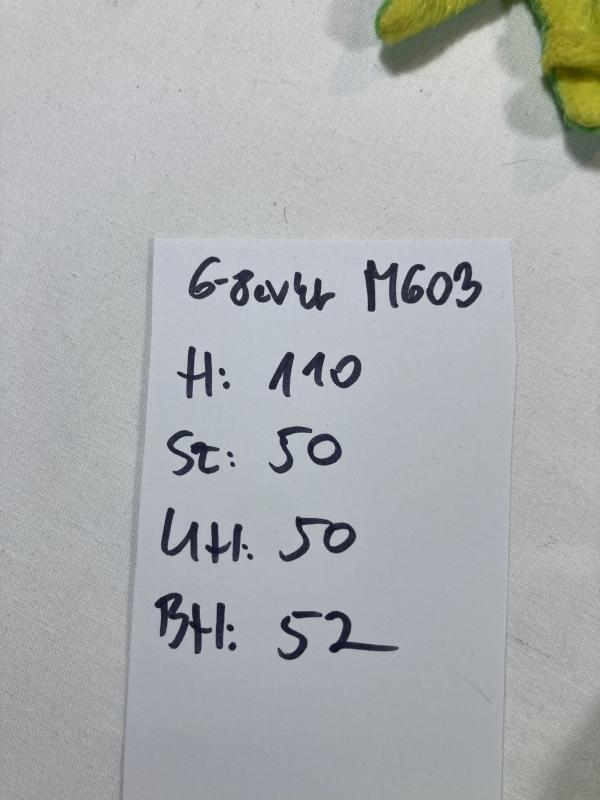 6-8 M603
H: 110
Sz: 50
UH: 50
BH: 52